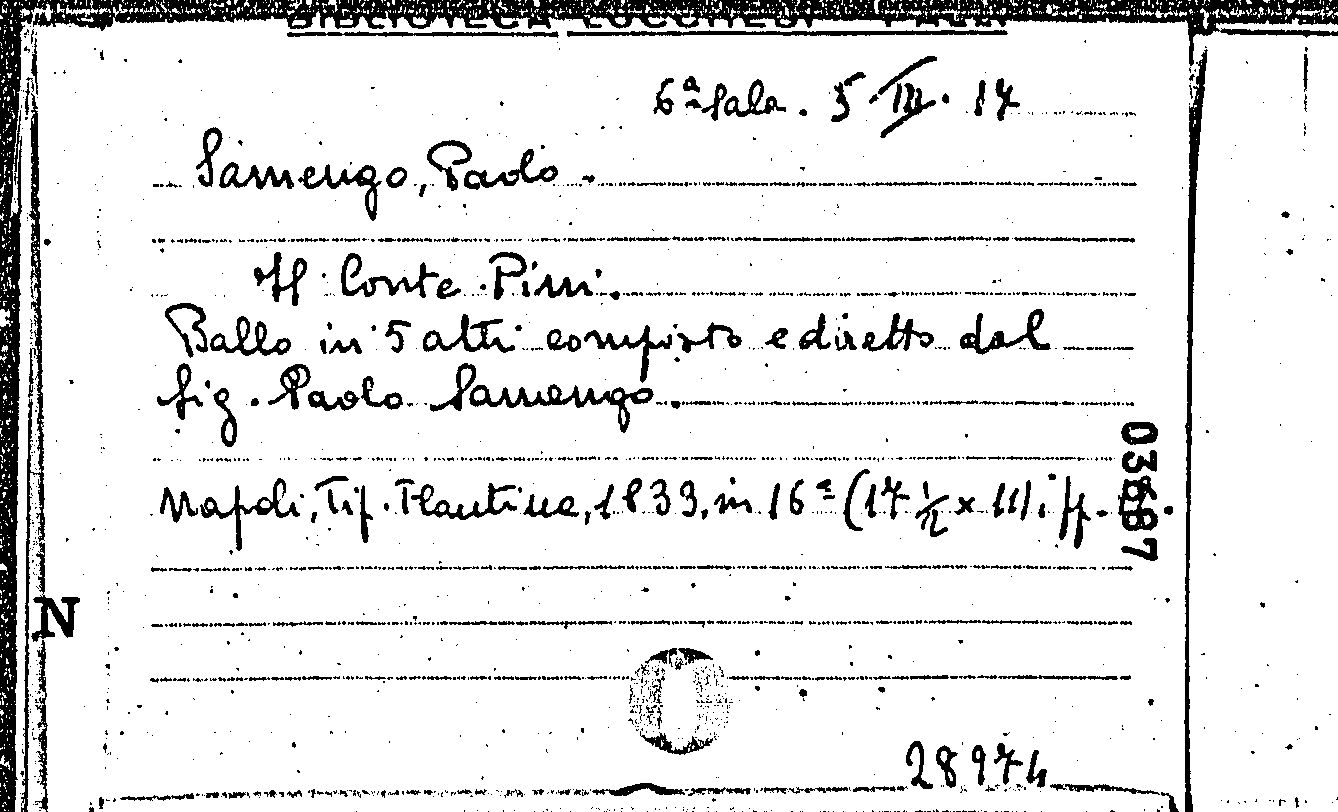 BIBLIOTECA LUCCHESI - PALLI
6ª Sala. 5.III.17
Samengo, Paolo.
Il Conte Pini.
Ballo in 5 atti composto e diretto dal
Sig. Paolo Samengo.
Napoli, Tip. Flautina, 1833, in 16º (17 ½ x 11); pp.
03687
N
28974